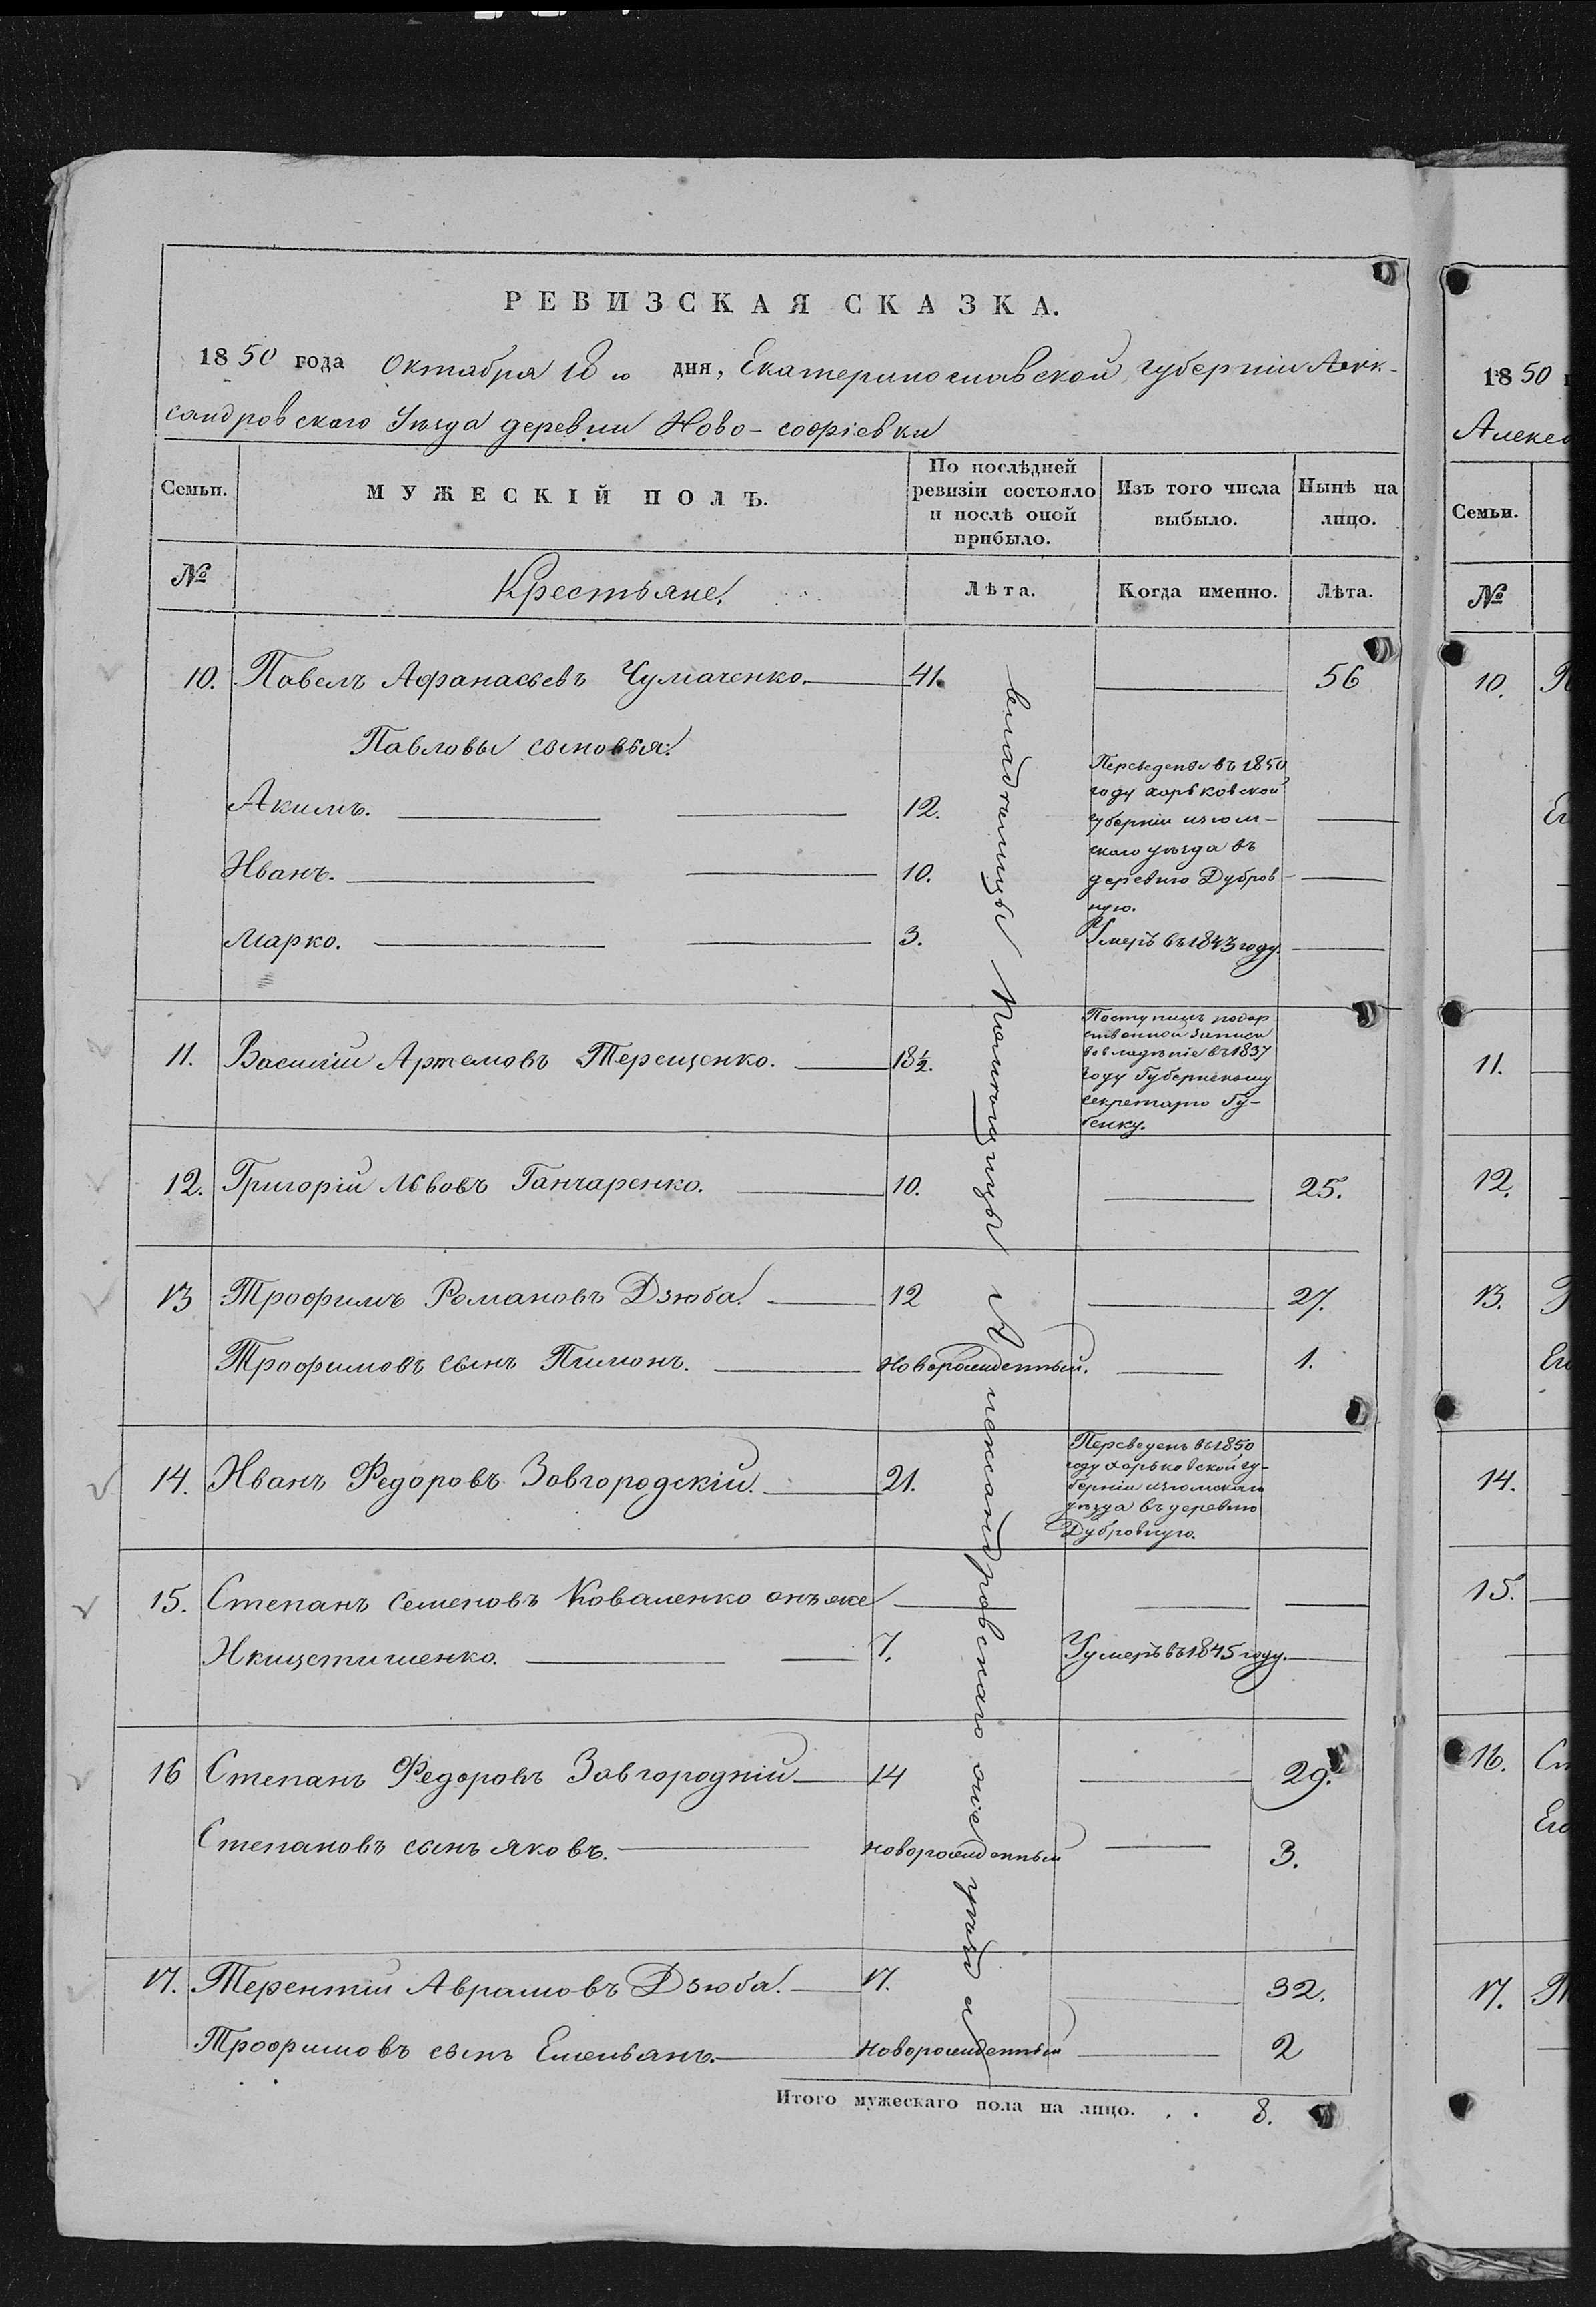 РЕВИЗСКАЯ СКАЗКА.
1850 года Октября 10 го дня, Екатеринославской губерніи Алек-
сандровского Уезда деревни Ново-софіевки
Семьи.
МУЖЕСКІЙ ПОЛЪ.
По послѣдней ревизіи состояло и послѣ оной прибыло.
Изъ того числа выбыло.
Нынѣ на лицо.
№ Крестьяне. Лѣта. Когда именно. Лѣта.
10. Павелъ Афанасьевъ Чумаченко. 41. 56
Павловы сыновья:
Акимъ. 12.
Переведены въ 1850
году харьковской
губерніи изюм-
скаго уезда въ
деревню Дубров-
ную.
Иванъ. 10.
Марко. 3. Умеръ въ 1843 году.
11. Василій Артемовъ Терещенко. 18½.
Поступилъ подар
ственной записи
во владѣніе въ 1837
году Губернскому
секретарю Гу-
бенку.
12. Григорій Львовъ Ганчаренко. 10. 25.
13 Трофимъ Романовъ Дзюба. 12 27.
Трофимовъ сынъ Пимонъ. новорожденный. 1.
14. Иванъ Федоровъ Завгородскій. 21.
Переведенъ въ 1850
году харьковской гу-
берніи изюмскаго
уезда въ деревню
Дубровную.
15. Степанъ Семеновъ Коваленко онъ же
7. Умеръ въ 1845 году.
16 Степанъ Федоровъ Завгородній 14 29.
Степановъ сынъ яковъ. новорожденный 3.
17. Терентій Аврамовъ Дзюба. 17. 32.
Трофимовъ сынъ Емельянъ. новорожденный 2
Итого мужескаго пола на лицо. . . 8.
Александровскаго
1850
Алекса
Семьи.
№
10.
11.
12.
13.
14.
15.
16. Ст
Его
17.